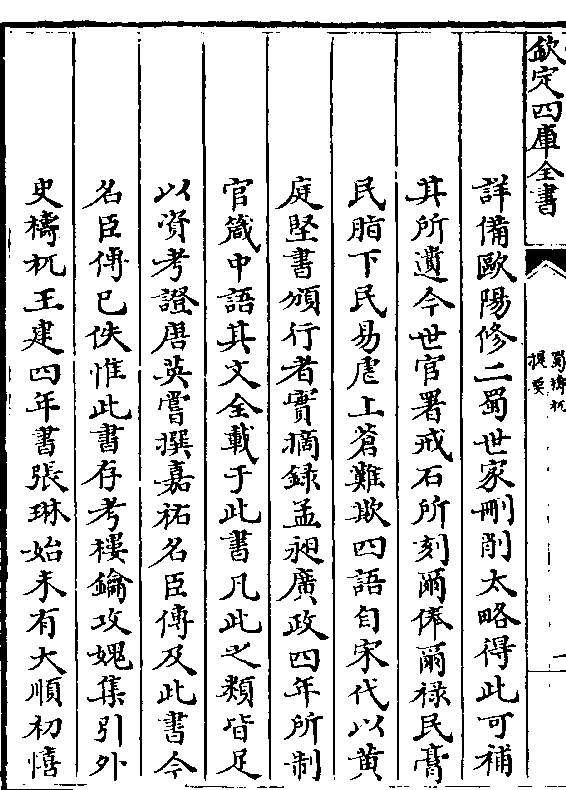 欽定四庫全書
蜀檮杌
提要
詳備歐陽修二蜀世家刪削太略得此可補
其所遺今世官署戒石所刻爾俸爾祿民膏
民脂下民易虐上蒼難欺四語自宋代以黃
庭堅書頒行者實摘錄孟昶廣政四年所制
官箴中語其文全載于此書凡此之類皆足
以資考證唐英嘗撰嘉祐名臣傳及此書今
名臣傳已佚惟此書存考樓鑰攻媿集引外
史檮杌王建四年書張琳始末有大順初憘